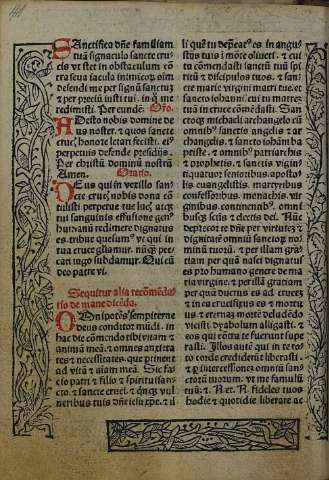 Sanctifica dñe familiam
tuã signaculo sancte cru-
cis vt stet in obstaculum cõ
tra seua iacula inimicoꝝ oĩm
defendi me per signũ sanctuʒ
⁊ per preciũ iusti tui. in q̃ me
redimisti. Per eundẽ. Oro.
Adesto nobis domine de
us noster. ⁊ quos sancte
cruc̃ honore letari fecisti. eiꝰ
perpetuis defende presidijs.
Per christũ dominũ nostrũ
Amen. Oratio.
Deus qui in vexillo san-
cte cruc̃ nobis dona cõ
tulisti perpetue tue luc̃. atqꝫ
tui sanguinis effusione genꝰ
humanũ redimere dignatus
es. tribue quesumꝰ vt qui in
tua cruce gliamur. nũc̃ pec-
cati iugo subdamur. Qui cũ
deo patre vi.
Sequitur alia recõmẽda
tio de mane dicẽda.
Omnipotẽs sempiterne
deus conditor mũdi. in
hac die cõmendo tibi vitam ⁊
animã meã. ⁊ omnes anxieta
tes ⁊ necessitates. que ꝑtinent
ad vitã ⁊ aiam meã. Sic fa-
cio patri ⁊ filio ⁊ spiritui san-
cto. ⁊ sancte cruci. ⁊ qnqꝫ vul
neribus tuis dñe iesu xp̃e. ⁊ il
li que tu deꝑcatꝰ es in angu
stijs tuis ĩ mõte oliueti. ⁊ cui
tu cõmendasti sanctũ tuũ spi
ritũ ⁊ discipulos tuos. ⁊ san-
cte marie virgini matri tue. ⁊
sancto iohanni cui tu matreʒ
tuã in cruce cõmẽdasti. San
ctoqꝫ michaeli archangelo cũ
omnibꝰ sanctis angelis ⁊ ar
changelis. ⁊ sancto iohãni ba
ptiste. ⁊ omnibꝰ patriarchis
⁊ prophetis. ⁊ sanctis vigin-
tiquatuor senioribus aposto
lis euangelistis. martyribus
confessoribus. monachis. vir
ginibus. continentibꝰ. omni
busqꝫ sctis ⁊ electis dei. Nũc
deprecor te dñe per virtuteʒ ⁊
dignitatẽ omniũ sanctoꝝ no-
minũ tuorũ. ⁊ per illam grati
am per quã nasci dignatus es
pro humano genere de ma
ria virgine. ⁊ ꝑ illã gratiam
per quã ductus es ad cruceʒ
⁊ in ea crucifixus es ⁊ mortu
us. ⁊ eternaʒ mortẽ deuincẽdo
vicisti. dyabolum alligasti. ⁊
eos qui cõtra te fuerunt supe
rasti. Illos autẽ qui in te to-
to corde crediderũt liberasti.
⁊ ꝑ intercessiones omniũ san-
ctorũ tuorum. vt me famulũ
tuũ. ⁊ N. ⁊ N. fideles tuos
hodie ⁊ quotidie liberare ac